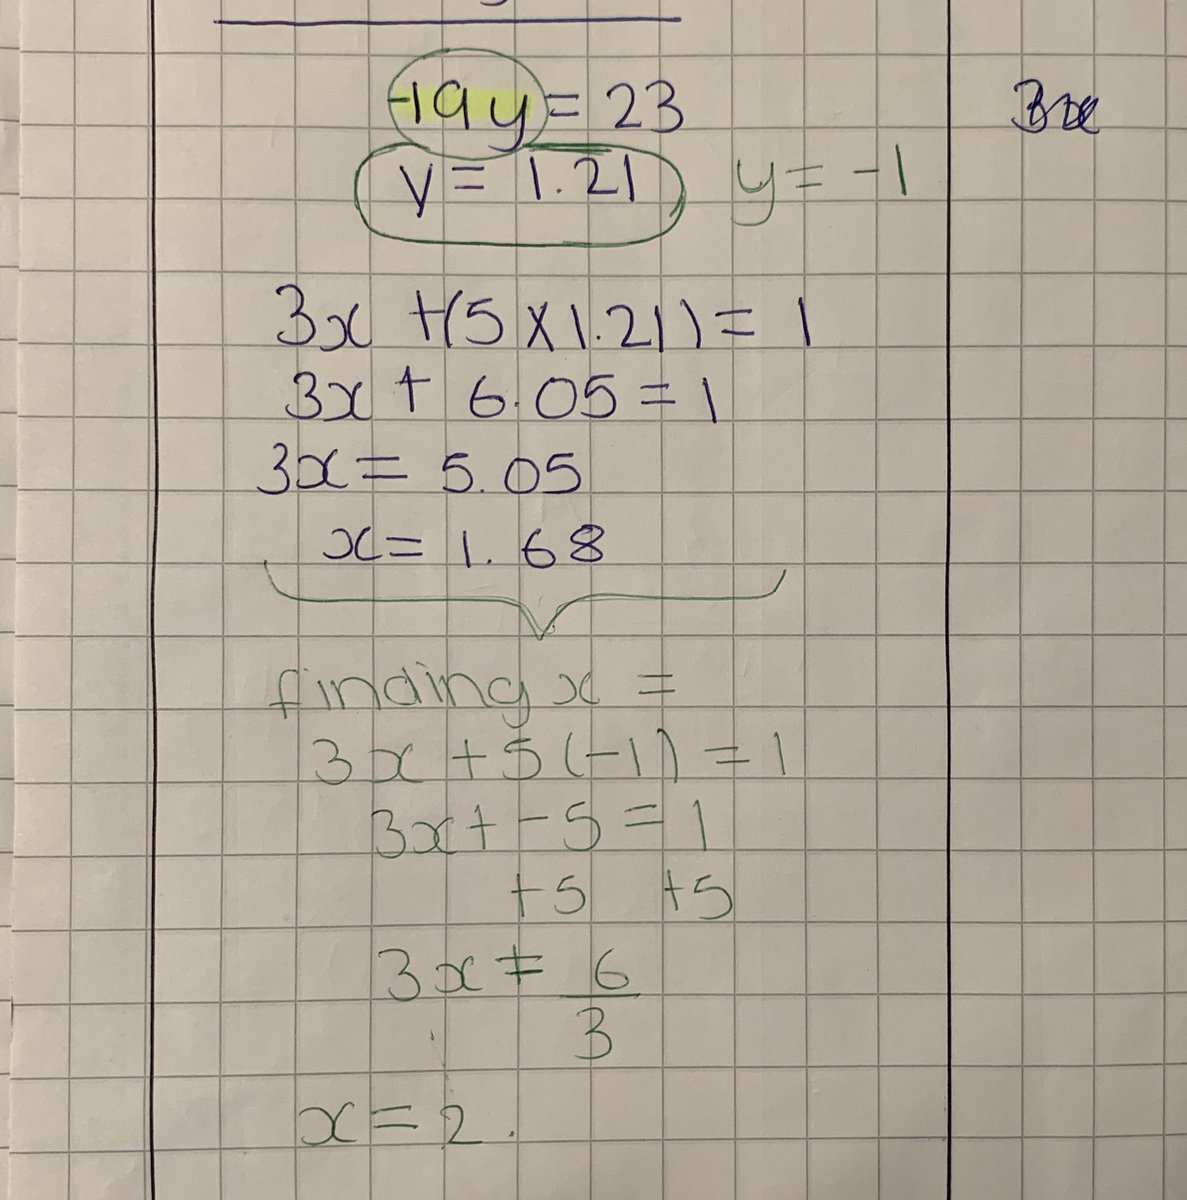 -19y = 23
y = 1.21 y = -1
3x + (5 × 1.21) = 1
3x + 6.05 = 1
3x = 5.05
x = 1.68
finding x =
3x + 5(-1) = 1
3x + -5 = 1
+5 +5
3x = 6
3
x = 2.